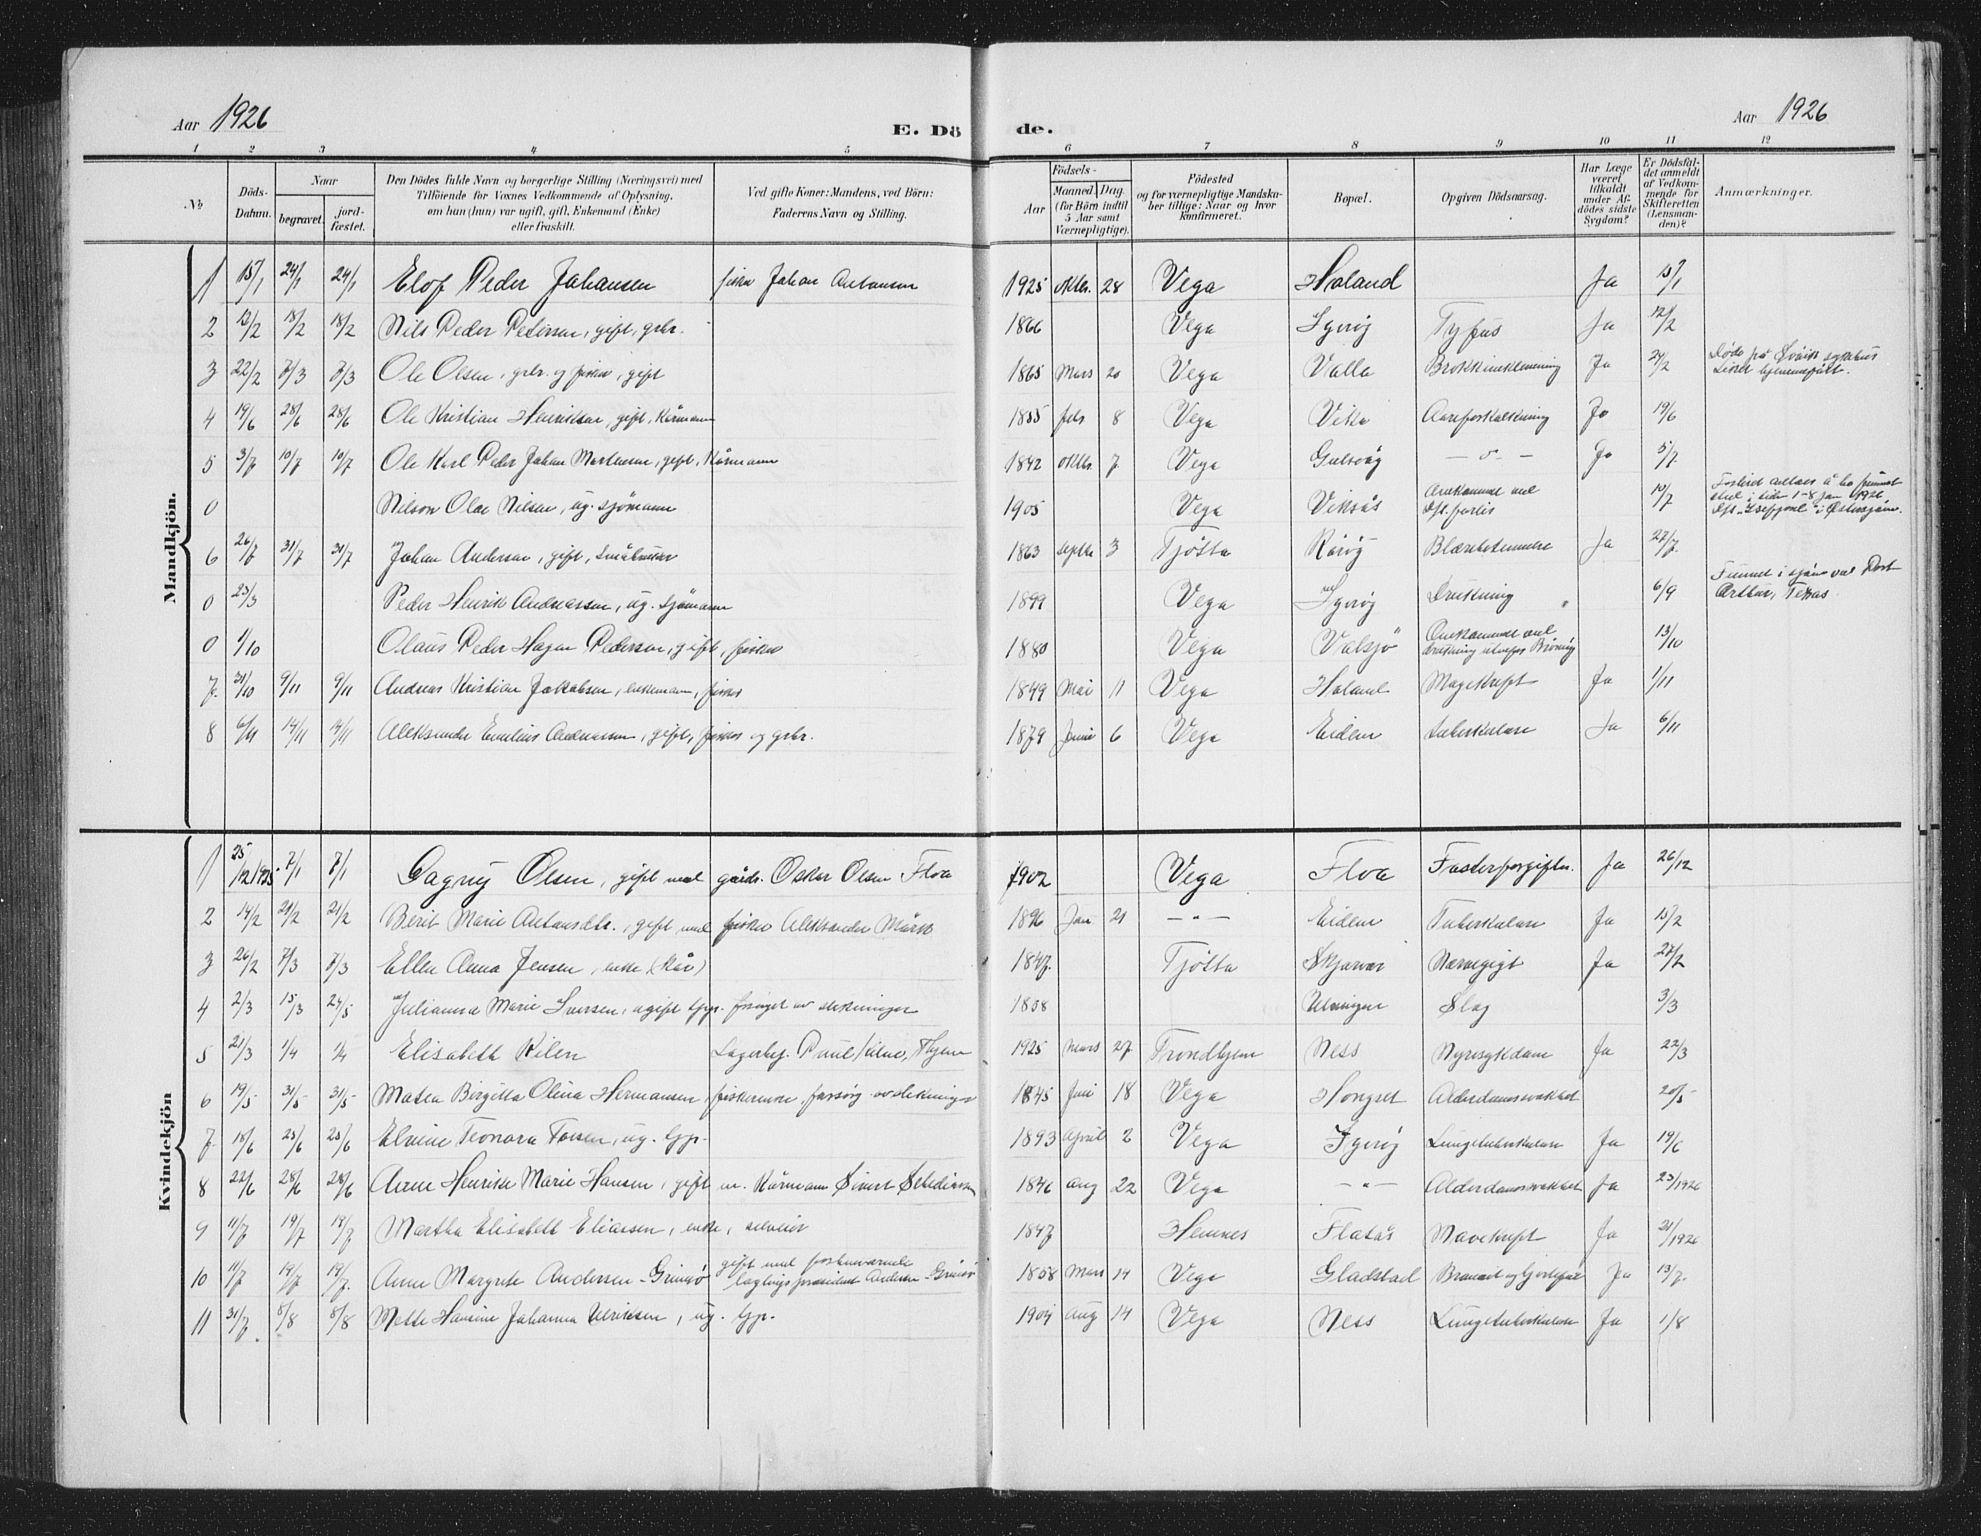 Aar 1926
E. Dö
de.
Aar 1926
1 2 3 4 5 6 7 8 9 10 11 12
No
Döds-Datum.
Naar
begravet.
jord-fæstet.
Den Dödes fulde Navn og borgerlige Stilling (Næringsvei) med
Tilföiende for Voxnes Vedkommende af Oplysning,
om han (hun) var ugift, gift, Enkemand (Enke)
eller fraskilt.
Ved gifte Koner: Mandens, ved Börn:
Faderens Navn og Stilling.
Födsels-
Aar
Maaned. Dag.
(for Börn indtil
5 Aar samt
Værnepligtige).
Födested
og for værnepligtige Mandska-
ber tillige: Naar og hvor
konfirmeret.
Bopæl.
Opgiven Dödsaarsag.
Har Læge
været
tilkaldt
under Af-
dödes sidste
Sygdom?
Er Dödsfal-
det anmeldt
af Vedkom-
mende for
Skifteretten
(Lensman-
den)?
Anmærkninger.
Mandkjön.
1 15/1 24/1 24/1 Elof Peder Johansen fisker Johan Antonsen 1925 oktbr. 28 Vega Holand Ja 15/1
2 12/2 18/2 18/2 Nils Peder Pedersen, gift, grbr. 1866 Vega Igerøy Tyfus Ja 12/2
3 22/2 7/3 7/3 Ole Olsen, grbr. og fisker, gift 1865 Mars 20 Vega Valla Brokkinklemning Ja 24/2 Døde på sykehus
4 19/6 28/6 28/6 Ole Kristian Henriksen, gift, Kårmann 1855 feb 8 Vega Vika Aareforkalkning Ja 19/6
5 3/7 10/7 10/7 Ole Karl Peder Johan Martinsen, gift, Kårmann 1842 oktbr. 7 Vega Gulsvåg — " — Ja 5/7
0 Nilson Olai Nilsen, ug. sjømann 1905 Vega Viksås Omkommet ved forlis 10/7 i tiden 1-8 jan 1926 i Østersjøen.
6 26/7 31/7 31/7 Johan Andersen, gift, småbruker 1863 septbr 3 Tjøtta Rørøy Blærebetennelse Ja 27/7
0 23/3 Peder Henrik Andreassen, ug. sjømann 1899 Vega Igerøy Drukning " 6/9 Funnet i sjøen ved Port Arthur, Texas
0 1/10 Olaus Peder Hagen Pedersen, gift, fisker 1880 Vega Valsjø Omkommet ved drukning utenfor Brønnøy 13/10
7. 31/10 9/11 9/11 Andreas Kristian Jakobsen, enkemann, fisker 1849 Mai 11 Vega Holand Magekreft Ja 1/11
8 6/11 14/11 14/11 Aleksander Emelius Andreassen, gift, fisker og grbr. 1879 Juni 6 Vega Eidem Tuberkulose Ja 6/11
Kvindekjön
1 25/12 1925 7/1 7/1 Dagny Olsen, gift med gårdb. Oskar Olsen Floa 1902 Vega Floa Fosterforgiftn. Ja 26/12
2 14/2 21/2 21/2 Berit Marie Antonsdtr., gift med fisker Aleksander 1896 Jan 21 — " — Eidem Tuberkulose Ja 15/2
3 26/2 7/3 7/3 Ellen Anna Jensen, enke (kår) 1847. Tjøtta Skjærvær Nervegigt Ja 27/2
4 2/3 15/3 24/5 Julianna Marie Iversen, ugift lgp. forsørget av slektninger 1858 Ulvingen Slag 3/3
5 21/3 1/4 1/4 Elisabeth Kilen Lagerbej. Paul Kilen, Thjem 1925 Mars 27 Trondhjem Ness Nyresykdom Ja 22/3
6 19/5 31/5 31/5 Matea Birgitta Olina Hermansen, fiskerenke, forsørg. av slektninger 1845 Juni 18 Vega Hongset Alderdomssvakhet 20/5
7. 18/6 25/6 25/6 Elvine Leonora Torsen, ug. lgp. 1893 April 2 Vega Igerøy Lungetuberkulose Ja 19/6
8 22/6 28/6 28/6 Anne Henrikke Marie Hansen, gift m. Kårmann Sivert 1846 Aug 22 Vega — " — Alderdomssvakhet Ja 23/1926
9 11/7 19/7 19/7 Martha Elisabeth Eliassen, enke, selveier 1847 Hemnes Flatås Mavekreft Ja 21/1926
10 11/7 19/7 19/7. Anne Margrete Andersen-Grimsø gift med forhenværende lagtingspresident Andersen-Grimsø 1858 Mars 14 Vega Gladstad Ja 13/7.
11 31/7 8/8 8/8 Mette Hansine Johanna Ulriksen, ug. lgp. 1904 Aug 14 Vega Ness Lungetuberkulose Ja 1/8